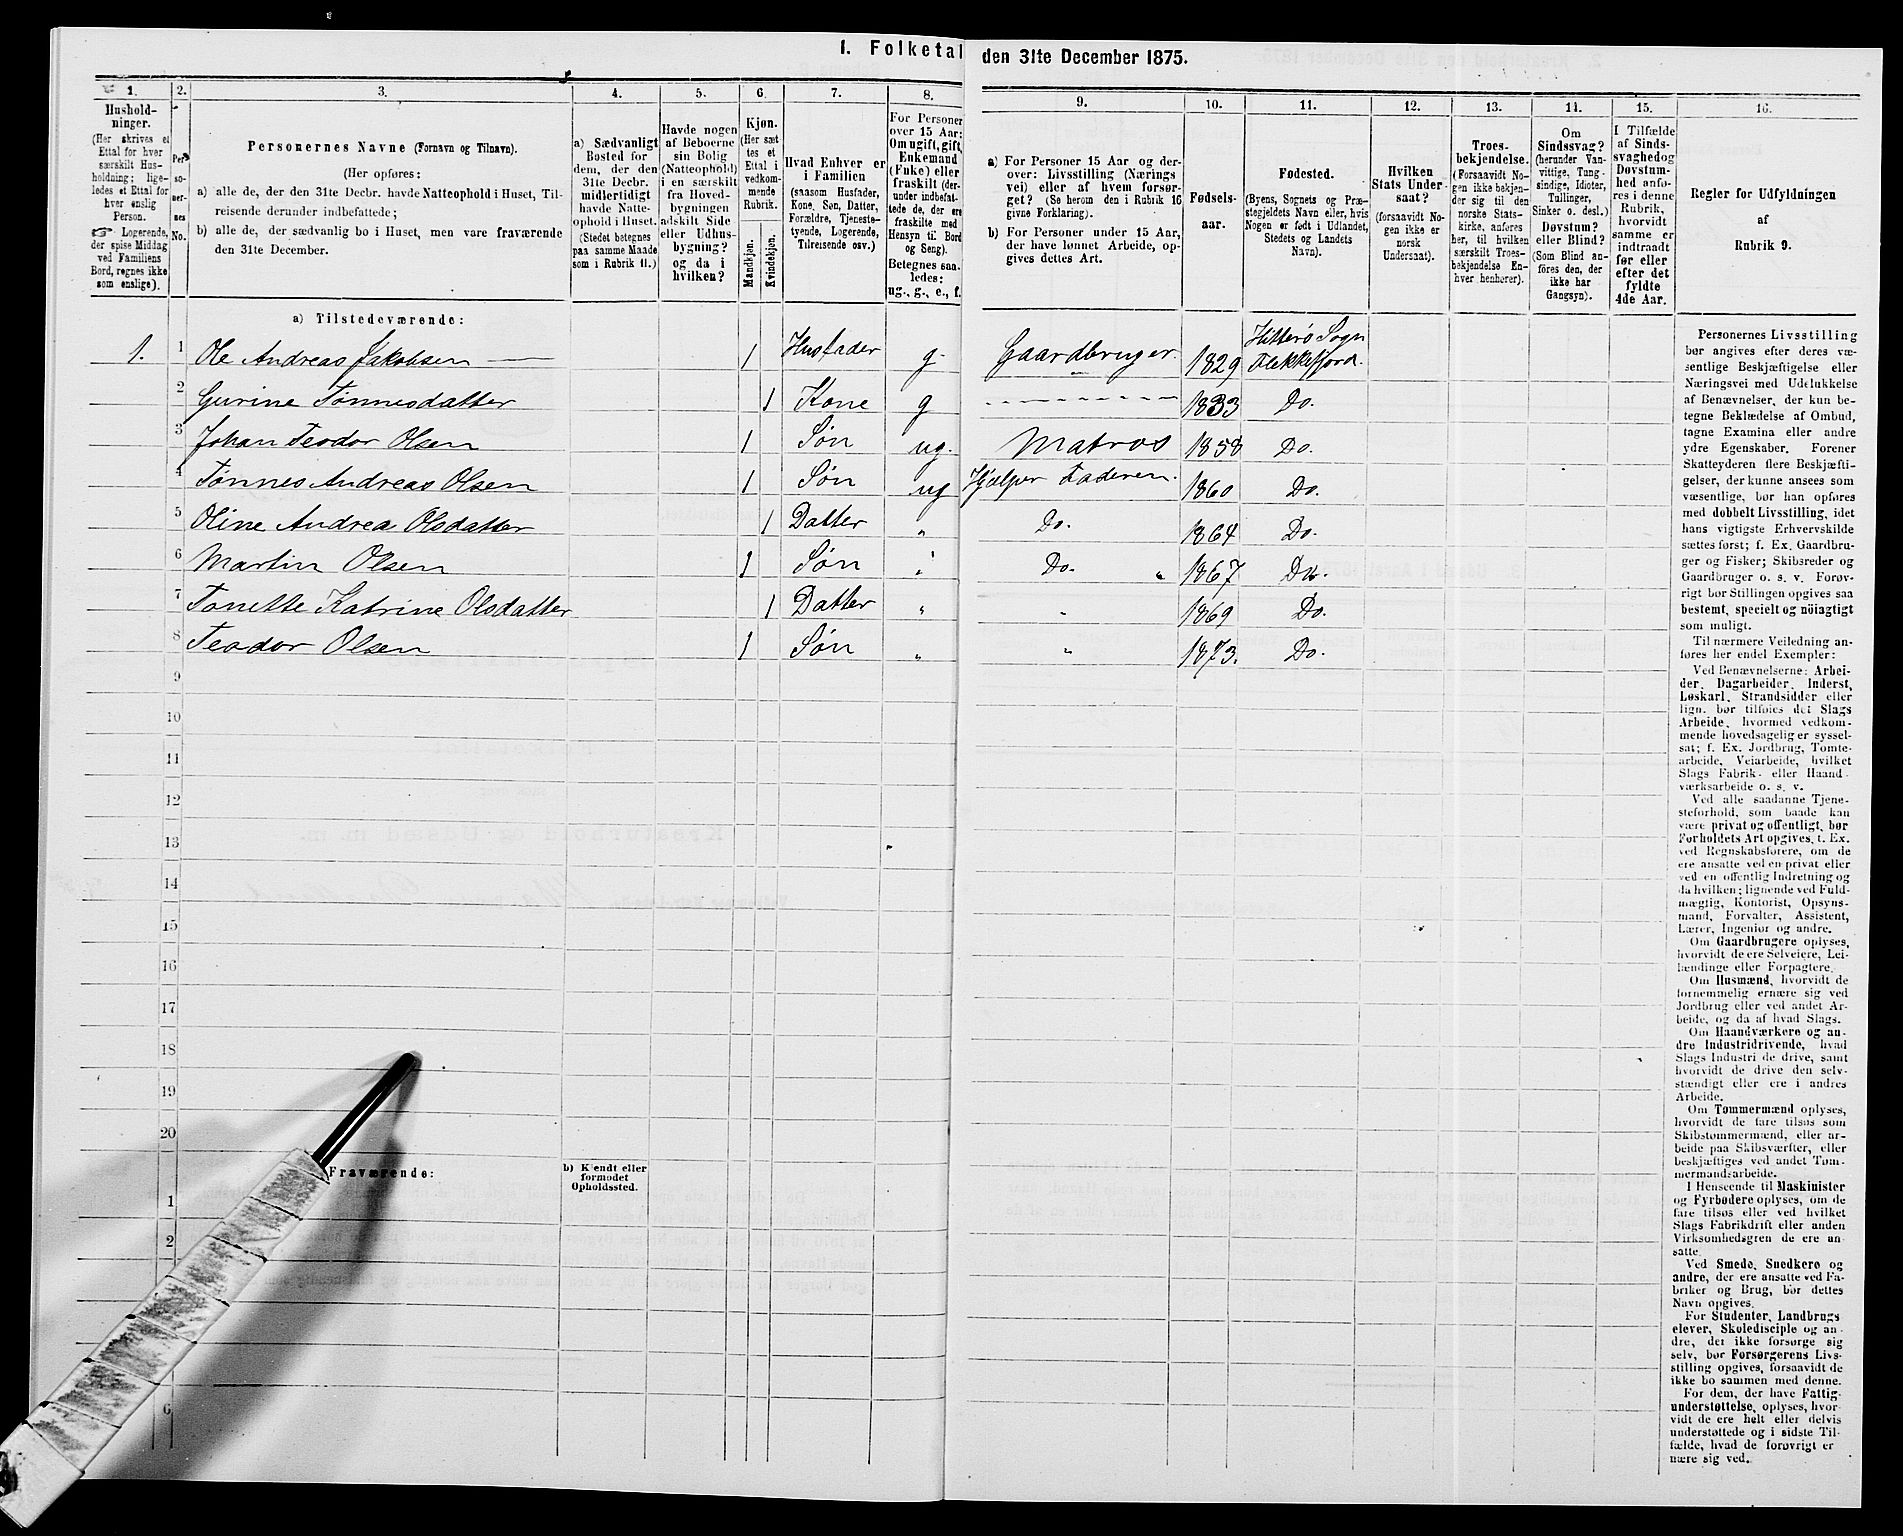 1. Folketal
den 31te December 1875.
1.
Hushold-
ninger.
(Her skrives et
Ettal for hver
særskilt Hus-
holdning; lige-
ledes et Ettal for
hver enslig
Person.
☞ Logerende,
der spise Middag
ved Familiens
Bord, regnes ikke
som enslige).
2.
Per-
so-
ner-
nes
No.
3.
Personernes Navne (Fornavn og Tilnavn).
(Her opføres:
a) alle de, der den 31te Decbr. havde Natteophold i Huset, Til-
reisende derunder indbefattede;
b) alle de, der sædvanlig bo i Huset, men vare fraværende
den 31te December.
4.
a) Sædvanligt
Bosted for
dem, der den
31te Decbr.
midlertidigt
havde Natte-
ophold i Huset.
(Stedet betegnes
paa samme Maade
som i Rubrik 11.)
5.
Havde nogen
af Beboerne
sin Bolig
(Natteophold)
i en særskilt
fra Hoved-
bygningen
adskilt Side
eller Udhus-
bygning?
og da i
hvilken?
6.
Kjøn.
(Her sæt
tes et
Ettal i
vedkom-
mende
Rubrik.
Mandkjøn.
Kvindekjøn.
7.
Hvad Enhver er
i Familien
(saasom Husfader,
Kone, Søn, Datter,
Forældre, Tjeneste-
tyende, Logerende,
Tilreisende osv.)
8.
For Personer
over 15 Aar:
Om ugift, gift,
Enkemand
(Enke) eller
fraskilt (der-
under indbefat-
tede de, der ere
fraskilte med
Hensyn til Bord
og Seng).
Betegnes saa-
ledes:
ug., g., e., f.
9.
a) For Personer 15 Aar og der-
over: Livsstilling (Nærings
vei) eller af hvem forsør-
get? (Se herom den i Rubrik 16
givne Forklaring).
b) For Personer under 15 Aar,
der have lønnet Arbeide, op-
gives dettes Art.
10.
Fødsels-
aar.
11.
Fødested.
(Byens, Sognets og Præ-
stegjeldets Navn eller, hvis
Nogen er født i Udlandet,
Stedets og Landets
Navn).
12.
Hvilken
Stats Under-
saat?
(forsaavidt No-
gen ikke er
norsk
Undersaat).
13.
Troes-
bekjendelse.
(Forsaavidt No-
gen ikke bekjen-
der sig til den
norske Stats-
kirke, anføres
her, til hvilken
særskilt Troes-
bekjendelse En-
hver henhører).
14.
Om
Sindssvag?
(herunder Van-
vittige, Tung-
sindige, Idioter,
Tullinger,
Sinker o. desl.)
Døvstum?
eller Blind?
(Som Blind an-
føres den, der
ikke har
Gangsyn).
15.
I Tilfælde
af Sinds-
svaghed og
Døvstum-
hed anfø-
res i denne
Rubrik,
hvorvidt
samme er
indtraadt
før eller
efter det
fyldte
4de Aar.
16.
Regler for Udfyldningen
af
Rubrik 9.
a) Tilstedeværende:
1. 1 Ole Andreas Jakobsen 1 Husfader g. Gaardbruger. 1829 Hitterø Sogn Flekkefjord.
2 Gurine Tønnesdatter 1 Kone g 1833 Do.
3 Johan Teodor Olsen 1 Søn ug. Matros 1858 Do.
4 Tønnes Andreas Olsen 1 Søn ug Hjælper Faderen. 1860 Do.
5 Oline Andrea Olsdatter 1 Datter " Do. 1864 Do.
6 Martin Olsen 1 Søn " Do. " 1867 Do.
7 Tonette Katrine Olsdatter 1 Datter " " 1869 Do.
8 Teodor Olsen 1 Søn " " 1873. Do.
9
10
11
12
13
14
15
16
17
18
19
20
Fraværende:
b) Kjendt eller
formodet
Opholdssted.
1
2
6
Personernes Livsstilling
bør angives efter deres væ-
sentlige Beskjæftigelse eller
Næringsvei med Udelukkelse
af Benævnelser, der kun be-
tegne Beklædelse af Ombud,
tagne Examina eller andre
ydre Egenskaber. Forener
Skatteyderen flere Beskjæfti-
gelser, der kunne ansees som
væsentlige, bør han opføres
med dobbelt Livsstilling, idet
hans vigtigste Erhvervskilde
sættes først; f. Ex. Gaardbru-
ger og Fisker; Skibsreder og
Gaardbruger o. s. v. Forøv-
rigt bør Stillingen opgives saa
bestemt, specielt og nøiagtigt
som muligt.
Til nærmere Veiledning an-
føres her endel Exempler:
Ved Benævnelserne: Arbei-
der, Dagarbeider, Inderst,
Løskarl, Strandsidder eller
lign. bør tilføies det Slags
Arbeide, hvormed vedkom-
mende hovedsagelig er syssel-
sat; f. Ex. Jordbrug, Tomte-
arbeide, Veiarbeide, hvilket
Slags Fabrik- eller Haand-
værksarbeide o. s. v.
Ved alle saadanne Tjene-
steforhold, som baade kan
være privat og offentligt, bør
Forholdets Art opgives, f. Ex.
ved Regnskabsførere, om de
ere ansatte ved en privat eller
ved en offentlig Indretning og
da hvilken; lignende ved Fuld-
mægtig, Kontorist, Opsyns-
mand, Forvalter, Assistent,
Lærer, Ingeniør og andre.
Om Gaardbrugere oplyses,
hvorvidt de ere Selveiere, Lei-
lændinge eller Forpagtere.
Om Husmænd, hvorvidt de
fornemmelig ernære sig ved
Jordbrug eller ved andet Ar-
beide, og da af hvad Slags.
Om Haandværkere og an-
dre Industridrivende, hvad
Slags Industri de drive, samt
hvorvidt de drive den selv-
stændigt eller ere i andres
Arbeide.
Om Tømmermænd oplyses,
hvorvidt de fare tilsøs som
Skibstømmermænd, eller ar-
beide paa Skibsværfter, eller
beskjæftiges ved andet Tøm-
mermandsarbeide.
I Henseende til Maskinister
og Fyrbødere oplyses, om de
fare tilsøs eller ved hvilket
Slags Fabrikdrift eller anden
Virksomhedsgren de ere an-
satte.
Ved Smede, Snedkere og
andre, der ere ansatte ved Fa-
briker og Brug, bør dettes
Navn opgives.
For Studenter, Landbrugs
elever, Skoledisciple og an-
dre, der ikke forsørge sig
selv, bør Forsørgerens Livs-
stilling opgives, forsaavidt de
ikke bo sammen med denne.
For dem, der have Fattig-
understøttelse, oplyses, hvor-
vidt de ere helt eller delvis
understøttede og i sidste Til-
fælde, hvad de forøvrigt er
nære sig ved.